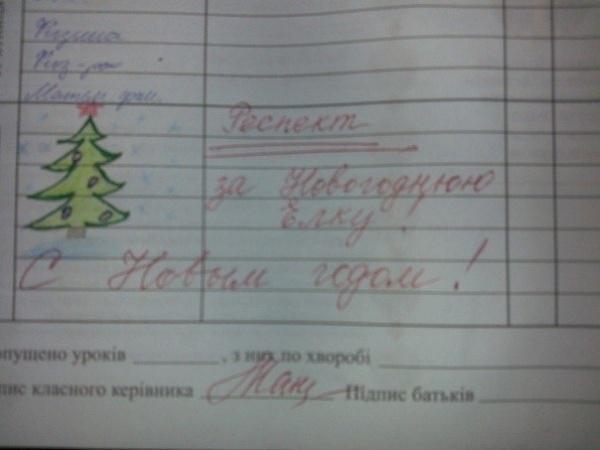 Физика
Физ-ра
Матем
Респект
за Новогоднюю
Ёлку!
С Новым годом!
опущено уроків , з них по хворобі
пис класного керівника Підпис батьків